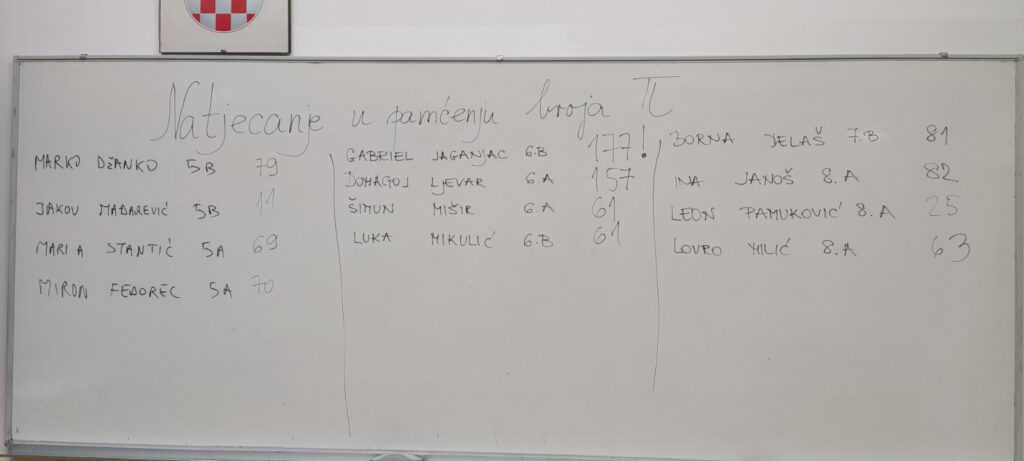 Natjecanje u pamćenju broja π
MARKO DŽANKO 5B 79
JAKOV MAĐAREVIĆ 5B 11
MARIA STANTIĆ 5A 69
MIRON FEDOREC 5A 70
GABRIEL JAGANJAC 6.B 177!
DOMAGOJ LJEVAR 6.A 157
ŠIMUN MIŠIR 6.A 61
LUKA MIKULIĆ 6.B 61
BORNA JELAŠ 7.B 81
INA JANOŠ 8.A 82
LEON PAMUKOVIĆ 8.A 25
LOVRO MILIĆ 8.A 63